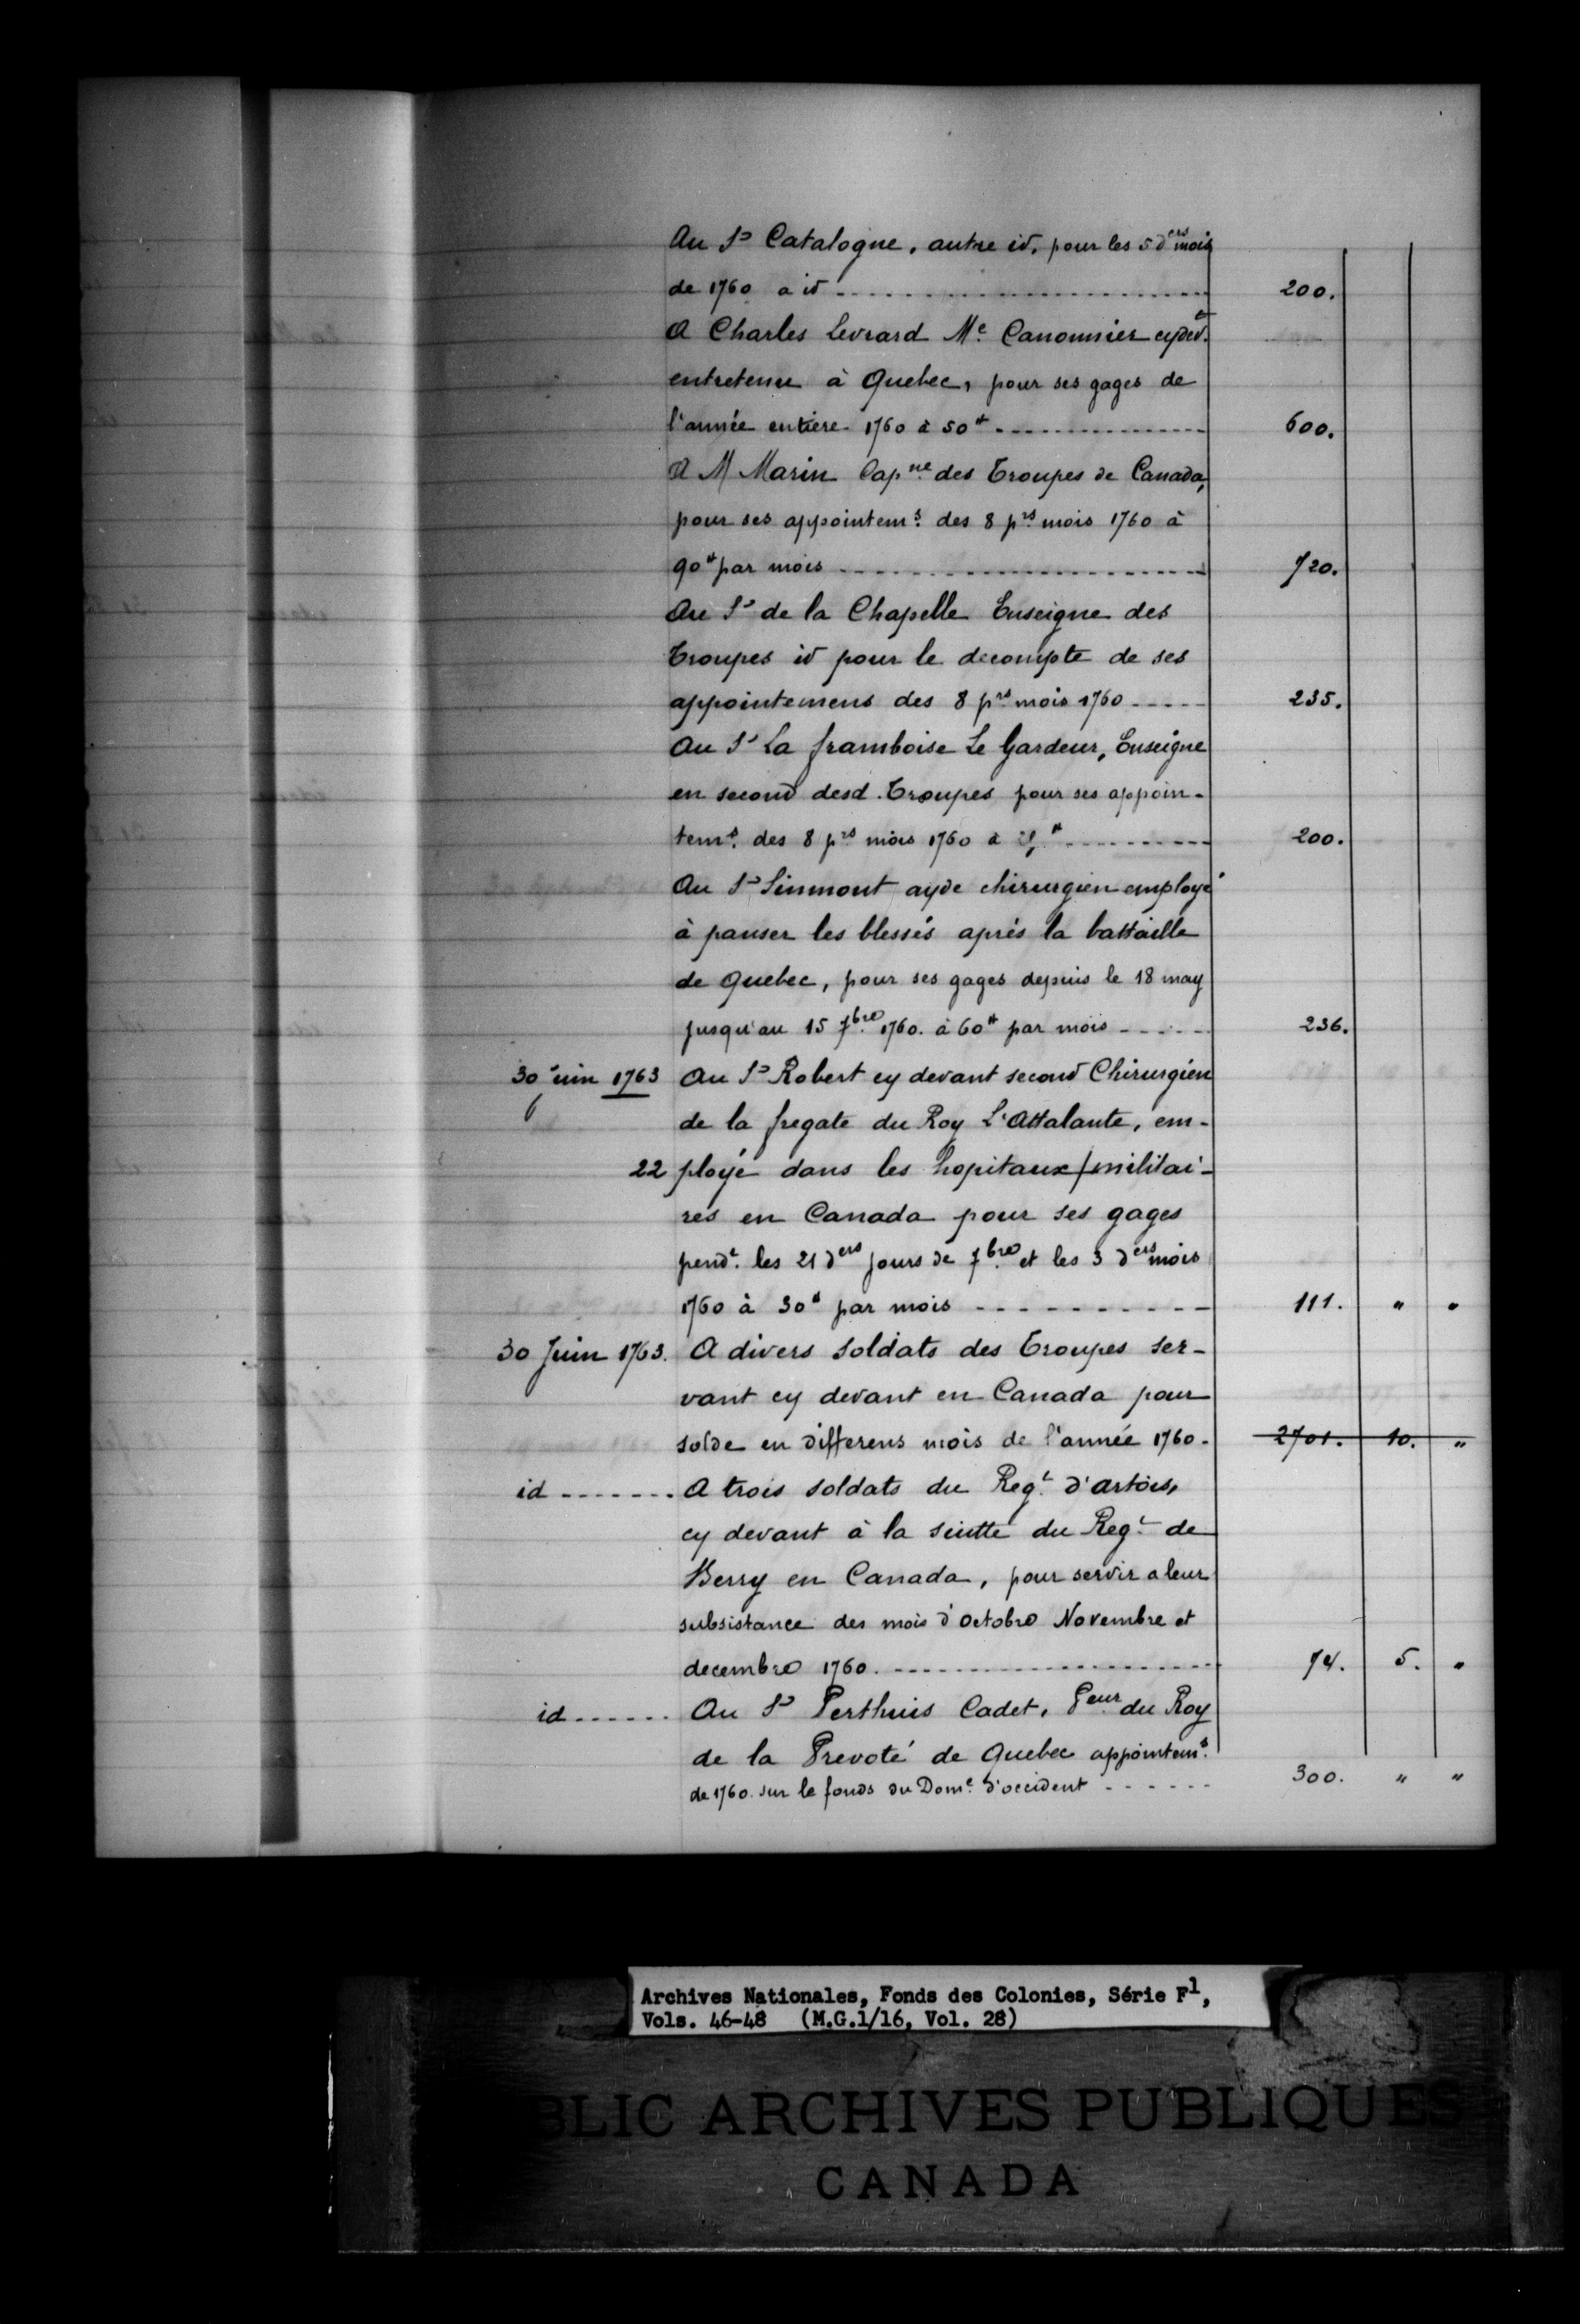 Au Sr Catalogne, autre id, pour les 5 ders mois
de 1760 a id ........................ 200.
A Charles Levrard Me. Canonnier cydevt.
entretenu à Quebec, pour ses gages de
l'année entiere 1760 à 50# ........................ 600.
A M Marin Capne. des Troupes de Canada,
pour ses appointems. des 8 prs. mois 1760 à
90# par mois ........................ 720.
Au Sr de la Chapelle Enseigne des
Troupes id pour le decompte de ses
appointemens des 8 prs mois 1760 ..... 235.
Au Sr La framboise Le Gardeur, Enseigne
en second desd. Troupes pour ses appoin-
tems. des 8 prs mois 1760 à # ......... 200.
Au Sr Sinmont ayde chirurgien employé
à panser les blessés aprés la battaille
de Quebec, pour ses gages depuis le 18 may
jusqu'au 15 7bre. 1760. à 60# par mois ..... 236.
30 Juin 1763 Au Sr Robert cy devant second Chirurgien
de la fregate du Roy L'Attalante, em-
22 ployé dans les hopitaux/militai-
res en Canada pour ses gages
pendt. les 21 ders jours de 7bre. et les 3 ders mois
1760 à 30# par mois .......... 111. " "
30 Juin 1763. A divers soldats des Troupes ser-
vant cy devant en Canada pour
solde en differens mois de l'année 1760. 2701. 10. "
id ....... A trois soldats du Regt. d'artois,
cy devant à la suitte du Regt. de
Berry en Canada, pour servir a leur
subsistance des mois d'octobre Novembre et
decembre 1760. .................... 74. 5. "
id ...... Au Sr Perthuis Cadet, Peur. du Roy
de la Prevoté de Quebec appointems.
de 1760. sur le fonds du Dome. d'occident ...... 300. " "
Archives Nationales, Fonds des Colonies, Série F1,
Vols. 46-48 (M.G.1/16, Vol. 28)
BLIC ARCHIVES PUBLIQUES
CANADA